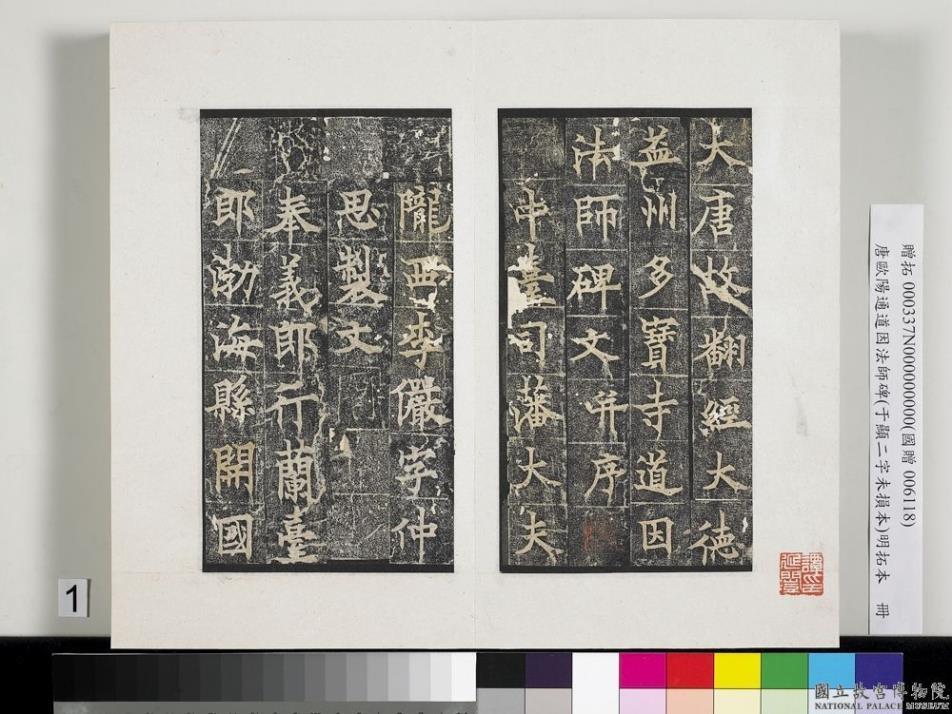 大唐故翻經大德
益州多寶寺道因
法師碑文并序
中臺司藩大夫
隴西李儼字仲
思製文
奉義郎行蘭臺
郎渤海縣開國
贈拓 000337N000000000(國贈 006118)
唐歐陽通道因法師碑(于顯二字未損本)明拓本 冊
1
國立故宮博物院
NATIONAL PALACE MUSEUM